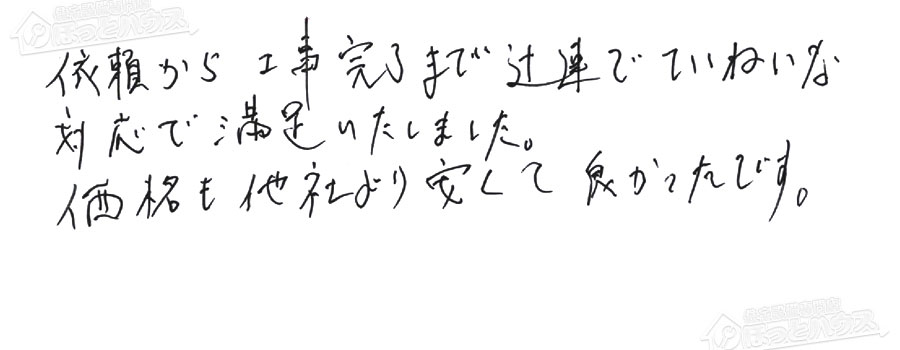 ほっとハウス
依頼から 工事完了まで迅速でていねいな
対応で満足いたしました。
価格も他社より安くて良かったです。
ほっとハウス